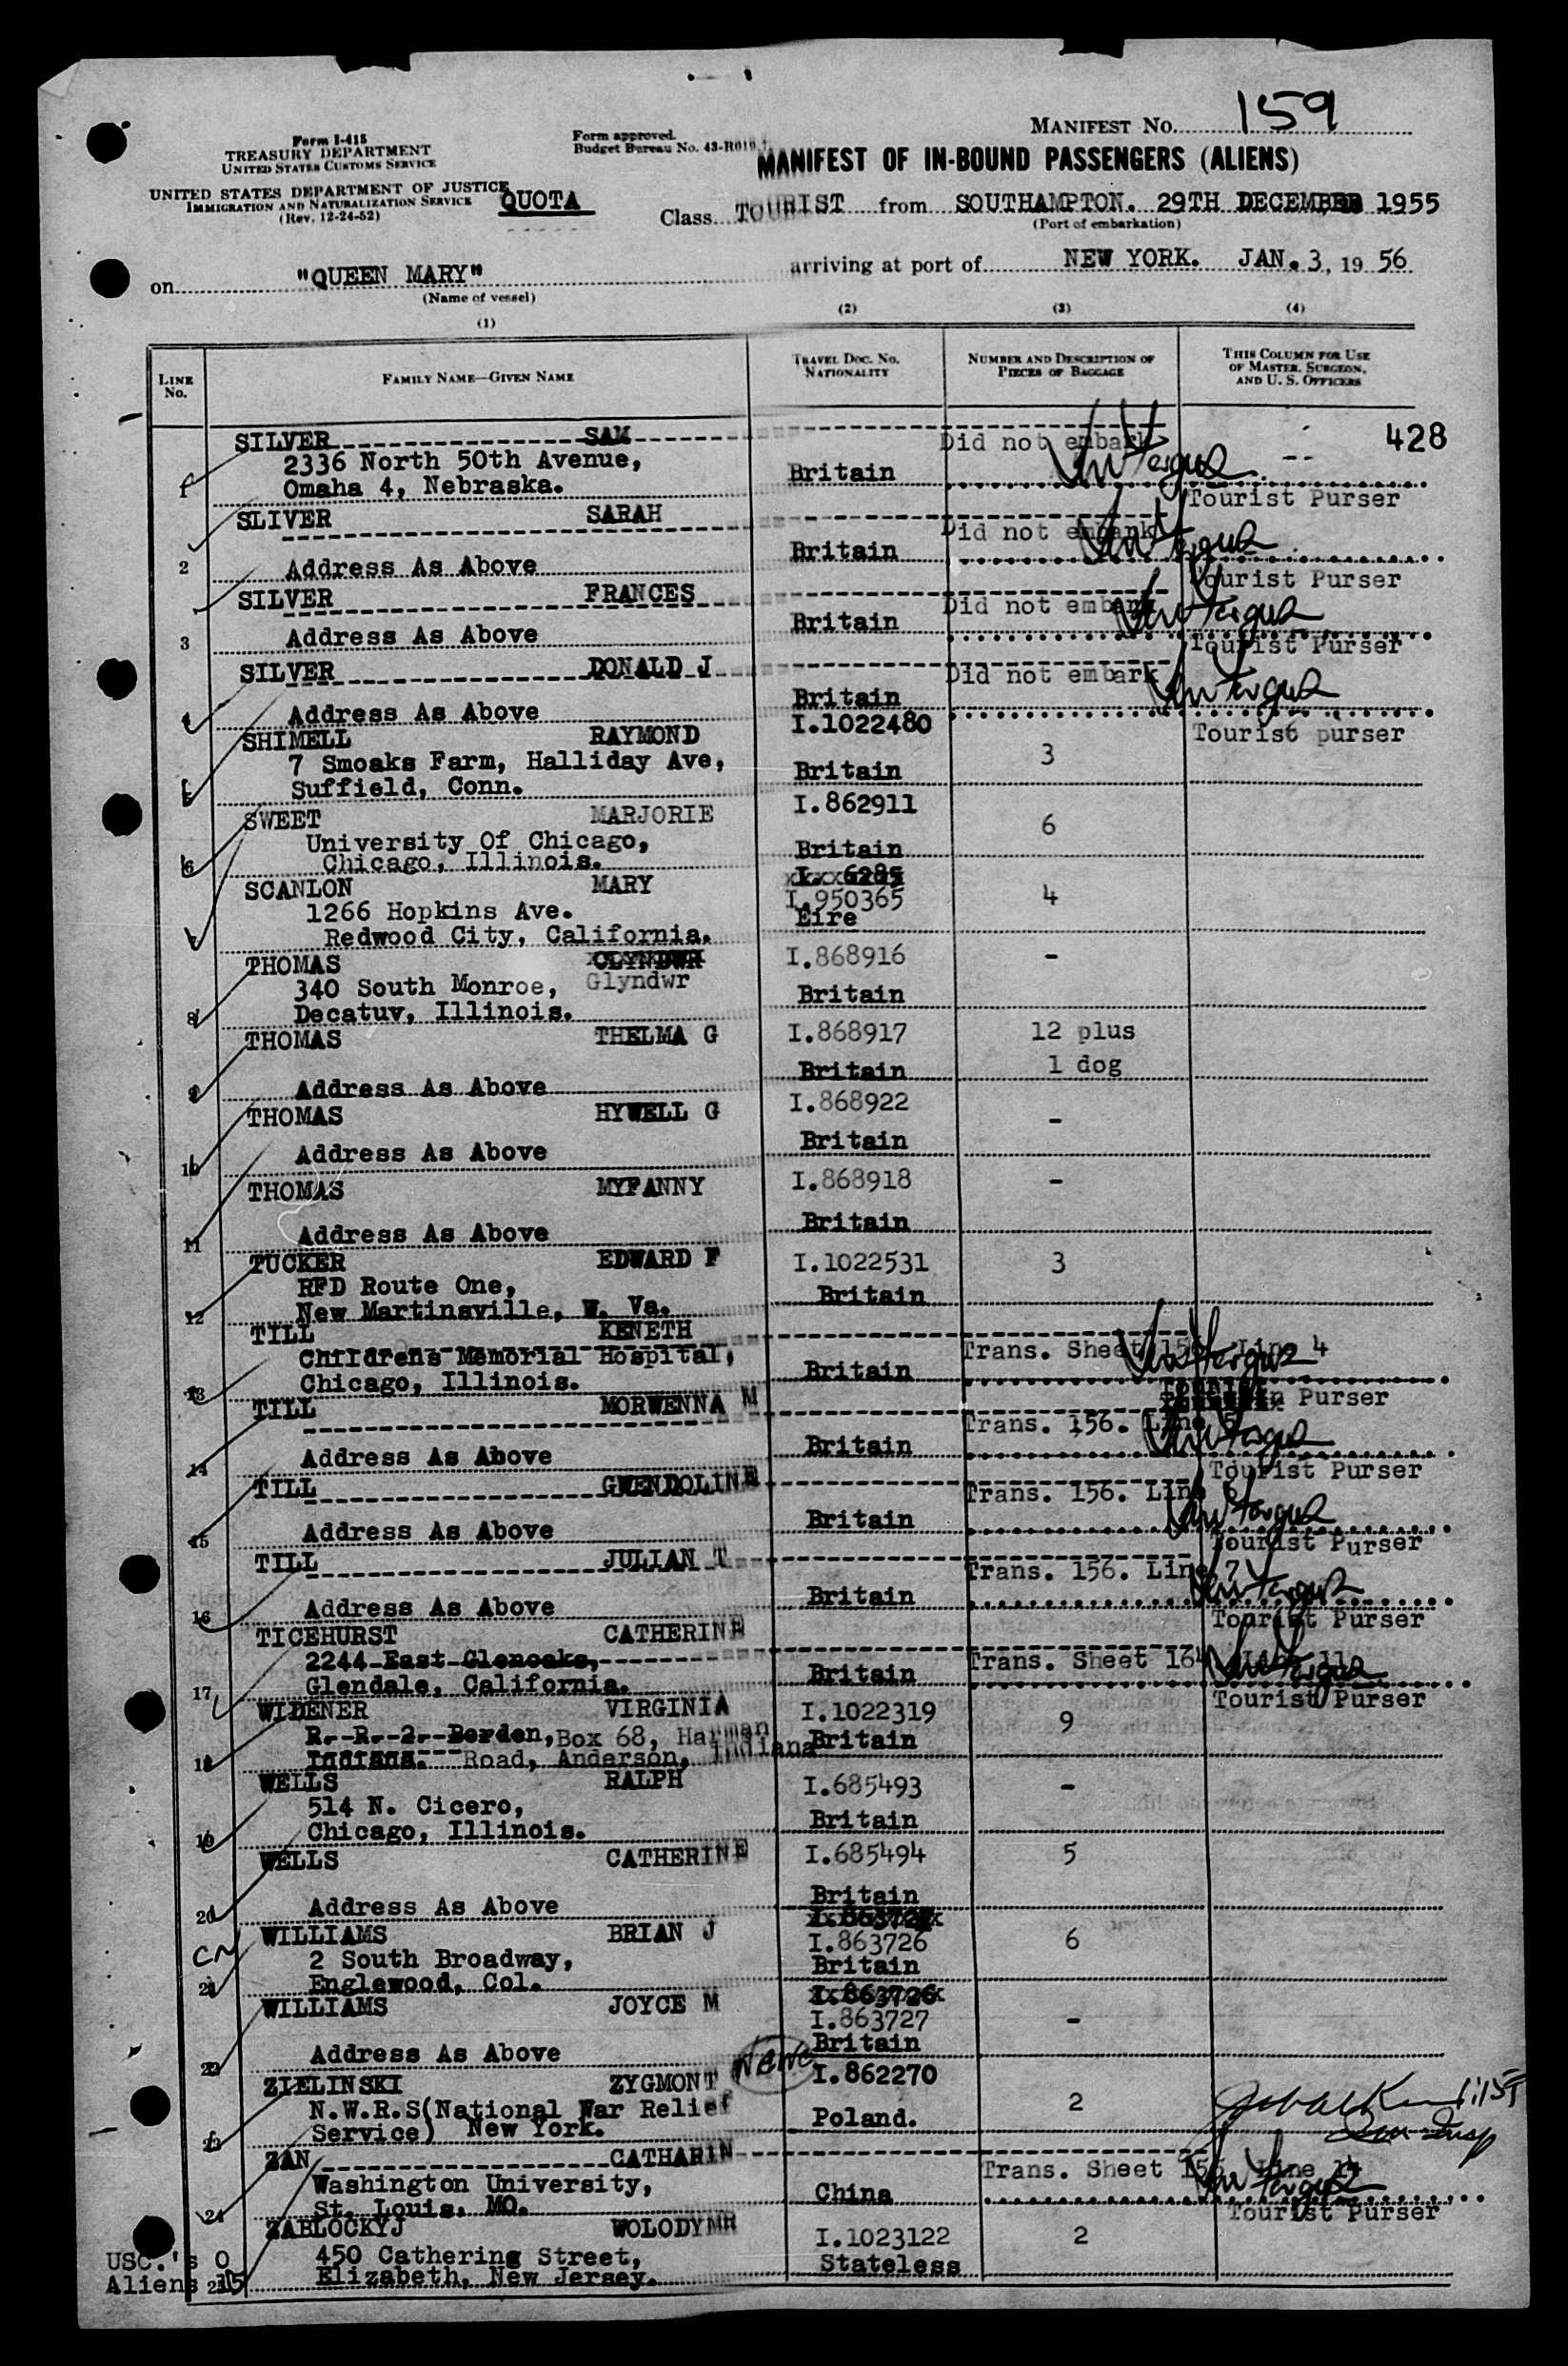 MANIFEST NO. 159
Form I-415
TREASURY DEPARTMENT
UNITED STATES CUSTOMS SERVICE
Form approved.
Budget Bureau No. 43-R010
MANIFEST OF IN-BOUND PASSENGERS (ALIENS)
UNITED STATES DEPARTMENT OF JUSTICE
IMMIGRATION AND NATURALIZATION SERVICE
(Rev. 12-24-52)
QUOTA
Class TOURIST from SOUTHAMPTON. 29TH DECEMBER 1955
(Port of embarkation)
on "QUEEN MARY" arriving at port of NEW YORK. JAN. 3, 19 56
(Name of vessel)
(1) (2) (3) (4)
LINE No. FAMILY NAME—GIVEN NAME TRAVEL DOC. NO. NATIONALITY NUMBER AND DESCRIPTION OF PIECES OF BAGGAGE THIS COLUMN FOR USE OF MASTER, SURGEON, AND U. S. OFFICERS
428
SILVER SAM Did not embark --
2336 North 50th Avenue,
1 Omaha 4, Nebraska. Britain Tourist Purser
SLIVER SARAH Did not embark
2 Address As Above Britain Tourist Purser
SILVER FRANCES Did not embark
3 Address As Above Britain Tourist Purser
SILVER DONALD J Did not embark
4 Address As Above Britain Tourist purser
SHIMELL RAYMOND I.1022480 3
7 Smoaks Farm, Halliday Ave,
5 Suffield, Conn. Britain
SWEET MARJORIE I.862911 6
University Of Chicago,
6 Chicago, Illinois. Britain
SCANLON MARY I.950365 4
1266 Hopkins Ave. Eire
7 Redwood City, California.
THOMAS GLYNDWR I.868916 -
340 South Monroe, Glyndwr
8 Decatuv, Illinois. Britain
THOMAS THELMA G I.868917 12 plus
1 dog
9 Address As Above Britain
THOMAS HYWELL G I.868922 -
10 Address As Above Britain
THOMAS MYFANNY I.868918 -
11 Address As Above Britain
TUCKER EDWARD F I.1022531 3
RFD Route One,
12 New Martinsville, W. Va. Britain
TILL KENETH Trans. Sheet 156 Line 4
Childrens Memorial Hospital,
13 Chicago, Illinois. Britain Purser
TILL MORWENNA M Trans. 156. Line 5
14 Address As Above Britain Tourist Purser
TILL GWENDOLINE Trans. 156. Line 6
15 Address As Above Britain Tourist Purser
TILL JULIAN T Trans. 156. Line 7
16 Address As Above Britain Tourist Purser
TICEHURST CATHERINE
2244 East Glenoaks, Trans. Sheet 164
17 Glendale, California. Britain Tourist Purser
WIDENER VIRGINIA I.1022319 9
R. R. 2. Borden, Box 68, Harman Britain
18 Indiana. Road, Anderson, Indiana
WELLS RALPH I.685493 -
514 N. Cicero,
19 Chicago, Illinois. Britain
WELLS CATHERINE I.685494 5
20 Address As Above Britain
I.863727
WILLIAMS BRIAN J I.863726 6
2 South Broadway, Britain
21 Englewood, Col.
I.863726
WILLIAMS JOYCE M I.863727 -
22 Address As Above Britain
ZIELINSKI ZYGMONT I.862270 2
N.W.R.S(National War Relief Poland.
23 Service) New York.
ZAN CATHARIN Trans. Sheet Line 14
Washington University,
24 St. Louis. MO. China Tourist Purser
ZABLOCKYJ WOLODYMR I.1023122 2
USC.'s 0 450 Cathering Street, Stateless
Aliens 15 25 Elizabeth, New Jersey.